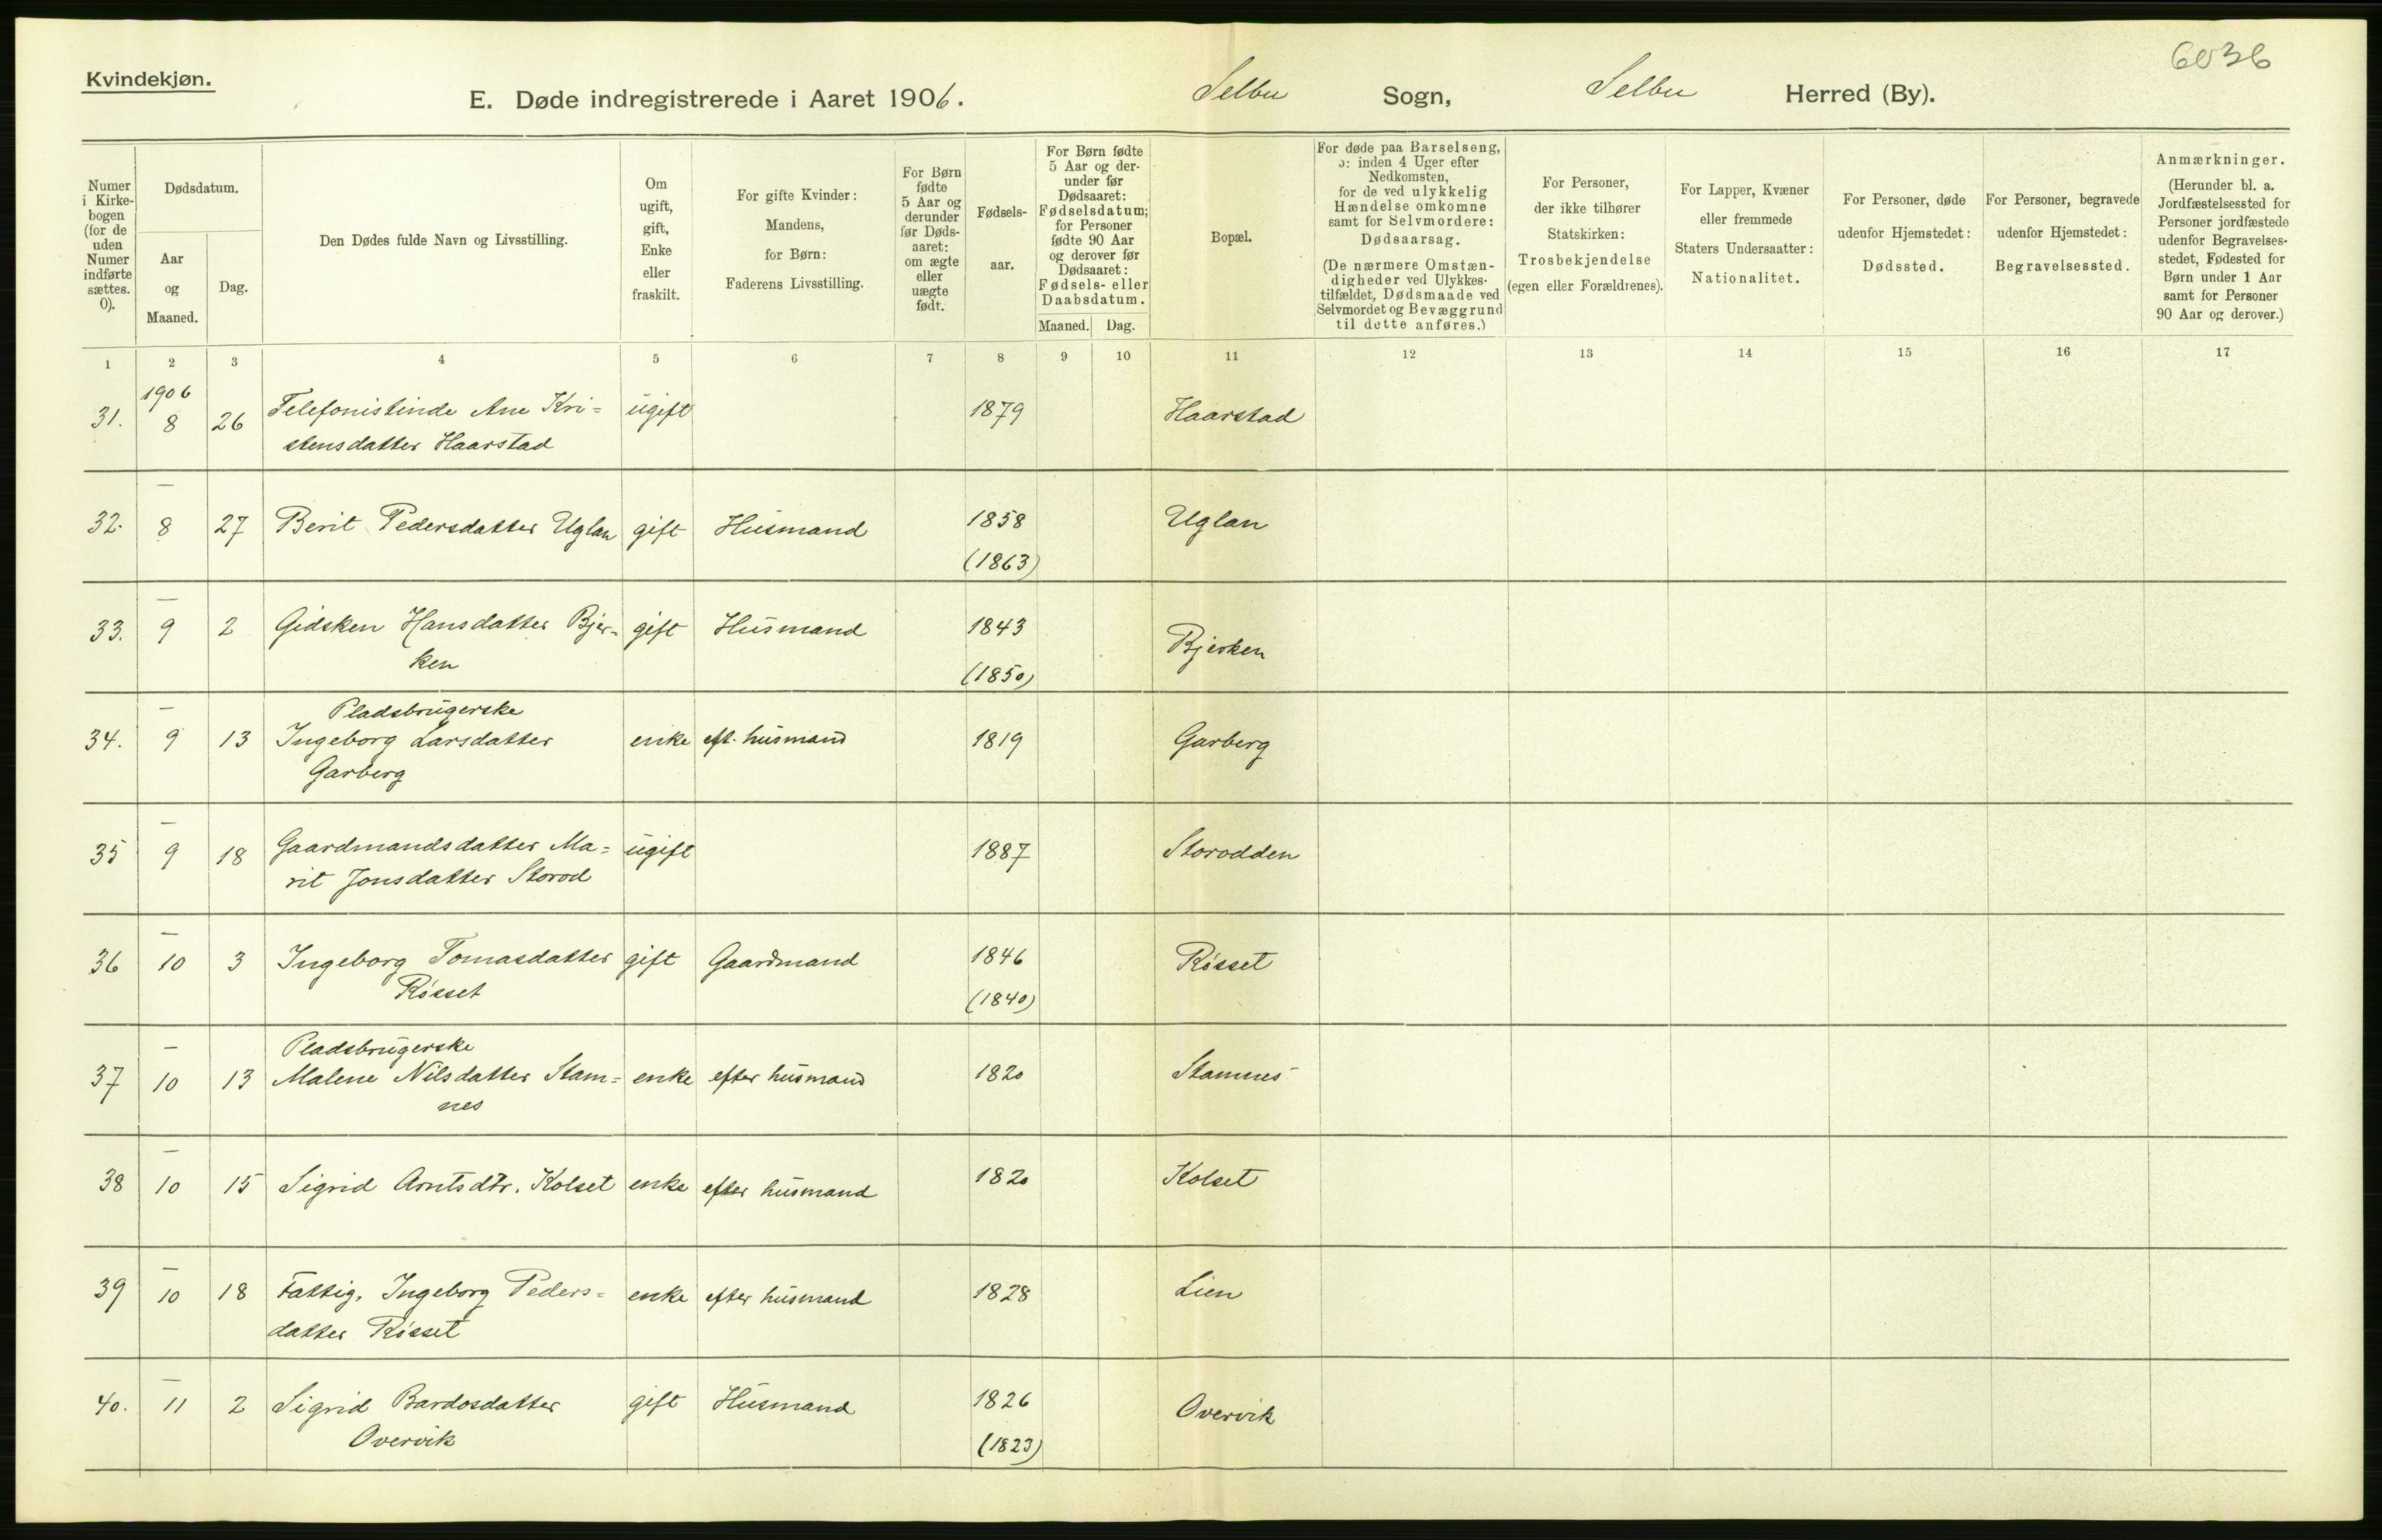 6036
Kvindekjøn.
E. Døde indregistrerede i Aaret 1906. Selbu Sogn, Selbu Herred (By).
Numer
i Kirke-
bogen
(for de
uden
Numer
indførte
sættes.
0).
Dødsdatum.
Aar
og
Maaned.
Dag.
Den Dødes fulde Navn og Livsstilling.
Om
ugift,
gift,
Enke
eller
fraskilt.
For gifte Kvinder:
Mandens,
for Børn:
Faderens Livsstilling.
For Børn
fødte
5 Aar og
derunder
før Døds-
aaret:
om ægte
eller
uægte
født.
Fødsels-
aar.
For Børn fødte
5 Aar og der-
under før
Dødsaaret:
Fødselsdatum;
for Personer
fødte 90 Aar
og derover før
Dødsaaret:
Fødsels- eller
Daabsdatum.
Maaned. Dag.
Bopæl.
For døde paa Barselseng,
ɔ: inden 4 Uger efter
Nedkomsten,
for de ved ulykkelig
Hændelse omkomne
samt for Selvmordere:
Dødsaarsag.
(De nærmere Omstæn-
digheder ved Ulykkes-
tilfældet, Dødsmaade ved
Selvmordet og Bevæggrund
til dette anføres.)
For Personer,
der ikke tilhører
Statskirken:
Trosbekjendelse
(egen eller Forældrenes).
For Lapper, Kvæner
eller fremmede
Staters Undersaatter:
Nationalitet.
For Personer, døde
udenfor Hjemstedet:
Dødssted.
For Personer, begravede
udenfor Hjemstedet:
Begravelsessted.
Anmærkninger.
(Herunder bl. a.
Jordfæstelsessted for
Personer jordfæstede
udenfor Begravelses-
stedet, Fødested for
Børn under 1 Aar
samt for Personer
90 Aar og derover.)
1 2 3 4 5 6 7 8 9 10 11 12 13 14 15 16 17
1906
31. 8 26 Telefonistinde Ane Kri= ugift 1879 Haarstad
stensdatter Haarstad
—
32. 8 27 Berit Pedersdatter Uglan gift Husmand 1858 Uglan
(1863)
—
33. 9 2 Gidsken Hansdatter Bjer= gift Husmand 1843 Bjerken
ken
(1850)
—
Pladsbrugerske
34. 9 13 Ingeborg Larsdatter enke eft. husmand 1819 Garberg
Garberg
—
35 9 18 Gaardmandsdatter Ma= ugift 1887 Storodden
rit Jonsdatter Storod
—
36 10 3 Ingeborg Tomasdatter gift Gaardmand 1846 Røsset
Røsset (1840)
—
Pladsbrugerske
37 10 13 Malene Nilsdatter Stam= enke efter husmand 1820 Stamnes
nes
—
38 10 15 Sigrid Arntsdtr. Kolset enke efter husmand 1820 Kolset
—
39 10 18 Fattig. Ingeborg Peders= enke efter husmand 1828 Lien
datter Røsset
—
40. 11 2 Sigrid Bardosdatter gift Husmand 1826 Overvik
Overvik (1823)